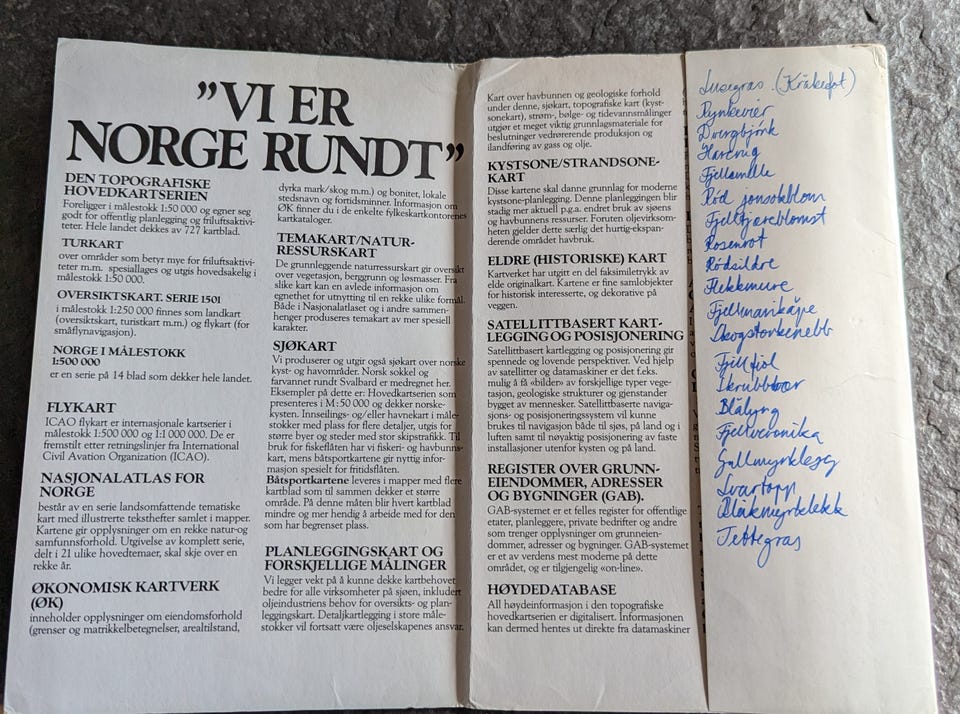 ”VI ER
NORGE RUNDT”
DEN TOPOGRAFISKE
HOVEDKARTSERIEN
Foreligger i målestokk 1:50 000 og egner seg
godt for offentlig planlegging og friluftsaktivi-
teter. Hele landet dekkes av 727 kartblad.
TURKART
over områder som betyr mye for friluftsaktivi-
teter m.m. spesiallages og utgis hovedsakelig i
målestokk 1:50 000.
OVERSIKTSKART. SERIE 1501
i målestokk 1:250 000 finnes som landkart
(oversiktskart, turistkart m.m.) og flykart (for
småflynavigasjon).
NORGE I MÅLESTOKK
1:500 000
er en serie på 14 blad som dekker hele landet.
FLYKART
ICAO flykart er internasjonale kartserier i
målestokk 1:500 000 og 1:1 000 000. De er
fremstilt etter retningslinjer fra International
Civil Avation Organization (ICAO).
NASJONALATLAS FOR
NORGE
består av en serie landsomfattende tematiske
kart med illustrerte teksthefter samlet i mapper.
Kartene gir opplysninger om en rekke natur-og
samfunnsforhold. Utgivelse av komplett serie,
delt i 21 ulike hovedtemaer, skal skje over en
rekke år.
ØKONOMISK KARTVERK
(ØK)
inneholder opplysninger om eiendomsforhold
(grenser og matrikkelbetegnelser, arealtilstand,
dyrka mark/skog m.m.) og boniter, lokale
stedsnavn og fortidsminner. Informasjon om
ØK finner du i de enkelte fylkeskartkontorenes
kartkataloger.
TEMAKART/NATUR-
RESSURSKART
De grunnleggende naturressurskart gir oversikt
over vegetasjon, berggrunn og løsmasser. Fra
slike kart kan en avlede informasjon om
egnethet for utnytting til en rekke ulike formål.
Både i Nasjonalatlaset og i andre sammen-
henger produseres temakart av mer spesiell
karakter.
SJØKART
Vi produserer og utgir også sjøkart over norske
kyst- og havområder. Norsk sokkel og
farvannet rundt Svalbard er medregnet her.
Eksempler på dette er: Hovedkartserien som
presenteres i M: 50 000 og dekker norske-
kysten. Innseilings- og/eller havnekart i måle-
stokker med plass for flere detaljer, utgis for
større byer og steder med stor skipstrafikk. Til
bruk for fiskeflåten har vi fiskeri- og havbunns-
kart, mens båtsportkartene gir nyttig infor-
masjon spesielt for fritidsflåten.
Båtsportkartene leveres i mapper med flere
kartblad som til sammen dekker et større
område. På denne måten blir hvert kartblad
mindre og mer hendig å arbeide med for den
som har begrenset plass.
PLANLEGGINGSKART OG
FORSKJELLIGE MÅLINGER
Vi legger vekt på å kunne dekke kartbehovet
bedre for alle virksomheter på sjøen, inkludert
oljeindustriens behov for oversikts- og plan-
leggingskart. Detaljkartlegging i store måle-
stokker vil fortsatt være oljeselskapenes ansvar.
Kart over havbunnen og geologiske forhold
under denne, sjøkart, topografiske kart (kyst-
sonekart), strøm-, bølge- og tidevannsmålinger
utgjør et meget viktig grunnlagsmateriale for
beslutninger vedrørende produksjon og
ilandføring av gass og olje.
KYSTSONE/STRANDSONE-
KART
Disse kartene skal danne grunnlag for moderne
kystsone-planlegging. Denne planleggingen blir
stadig mer aktuell p.g.a. endret bruk av sjøens
og havbunnens ressurser. Foruten oljevirksom-
heten gjelder dette særlig det hurtig-ekspan-
derende området havbruk.
ELDRE (HISTORISKE) KART
Kartverket har utgitt en del faksimiletrykk av
elde originalkart. Kartene er fine samlobjekter
for historisk interesserte, og dekorative på
veggen.
SATELLITTBASERT KART-
LEGGING OG POSISJONERING
Satellittbasert kartlegging og posisjonering gir
spennede og lovende perspektiver. Ved hjelp
av satellitter og datamaskiner er det f.eks.
mulig å få «bilder» av forskjellige typer vege-
tasjon, geologiske strukturer og gjenstander
bygget av mennesker. Satellittbaserte naviga-
sjons- og posisjoneringssystem vil kunne
brukes til navigasjon både til sjøs, på land og i
luften samt til nøyaktig posisjonering av faste
installasjoner utenfor kysten og på land.
REGISTER OVER GRUNN-
EIENDOMMER, ADRESSER
OG BYGNINGER (GAB).
GAB-systemet er et felles register for offentlige
etater, planleggere, private bedrifter og andre
som trenger opplysninger om grunneien-
dommer, adresser og bygninger. GAB-systemet
er et av verdens mest moderne på dette
området, og er tilgjengelig «on-line».
HØYDEDATABASE
All høydeinformasjon i den topografiske
hovedkartserien er digitalisert. Informasjonen
kan dermed hentes ut direkte fra datamaskiner
Lusegras. (Kråkefot)
Rynkevier
Dvergbjørk
Harerug
Fjellsmelle
Rød jonsokblom
Fjelltjæreblomst
Rosenrot
Rødsildre
Flekkmure
Fjellmarikåpe
Skogstorkenebb
Fjellfiol
Skrubbbær
Blålyng
Fjellveronika
Gullmyrklegg
Svartopp
Bleikmyrklegg
Tettegras